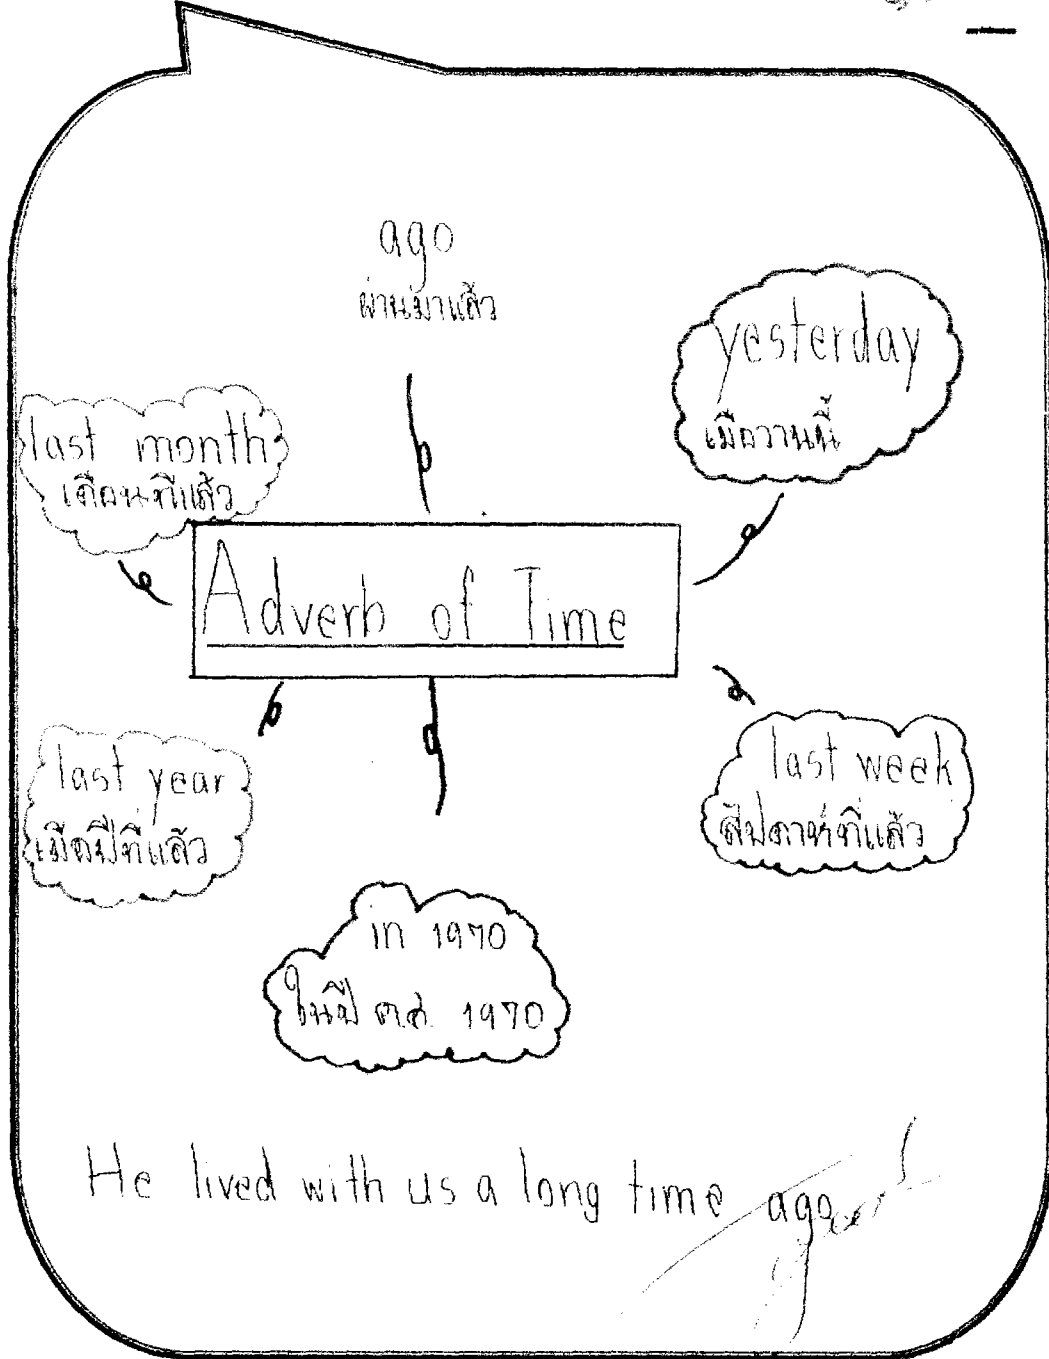 ago
ผ่านมาแล้ว
yesterday
เมื่อวานนี้
last month
เดือนที่แล้ว
Adverb of Time
last year
เมื่อปีที่แล้ว
last week
สัปดาห์ที่แล้ว
in 1970
ในปี ค.ศ. 1970
He lived with us a long time ago